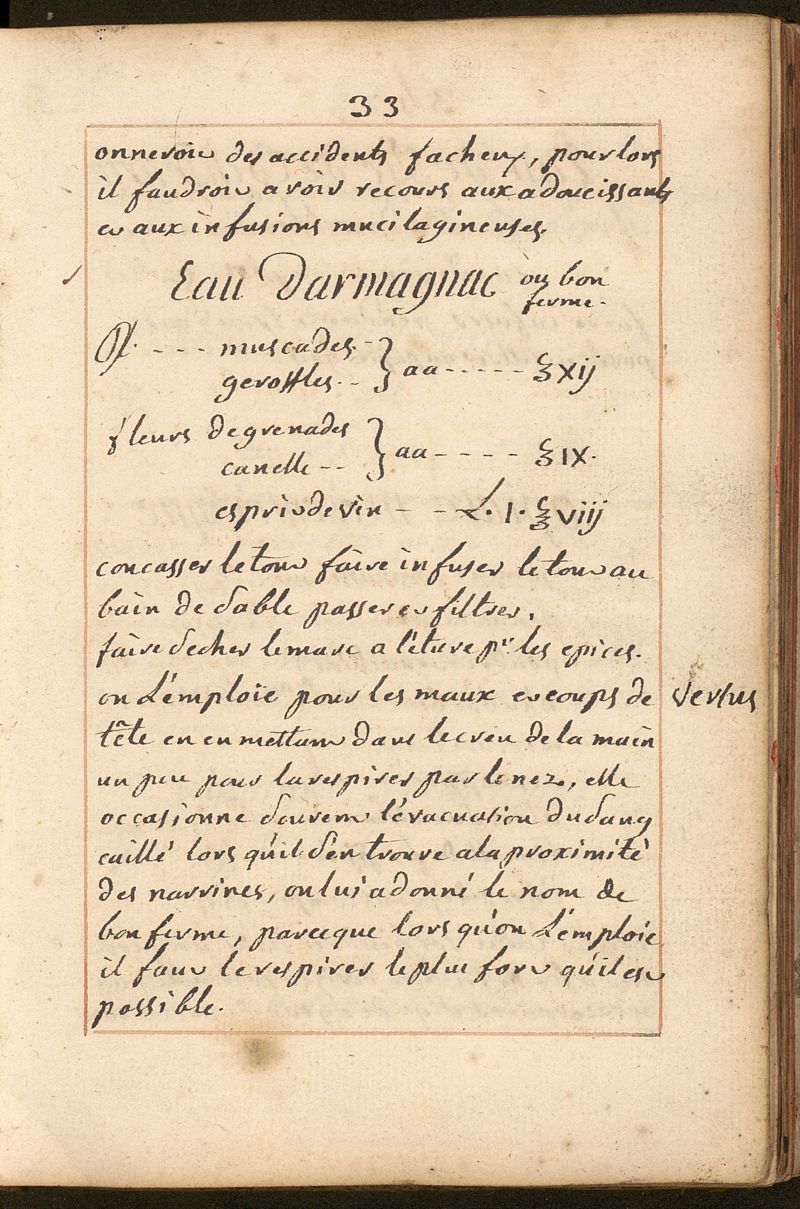 33
onneroit des accidents facheux, pour lors
il faudroit avoir recours aux adoucissants
et aux infusions mucilagineuses.
Eau Darmagnac ou bon
ferme.
℞. - - - muscades. -
geroffles. - } aa - - - - - ℥xij
fleurs de grenades
canelle - - } aa - - - - ℥ix.
esprit de vin - - L. 1. ℥viij
concasser le tout faire infuser le tout au
bain de sable passer et filtrer,
faire secher le marc a l'étuve pr. les epices.
on L'emploie pour les maux et coups de
vertus
tête en en mettant dans le creu de la main
un peu pour la respirer par le nez, elle
occasionne souvent l'évacuation du sang
caillé lors qu'il s'en trouve a la proximité
des narrines, on lui a donné le nom de
bon ferme, parce que lors qu'on L'emploie
il faut le respirer le plus fort qu'il est
possible.